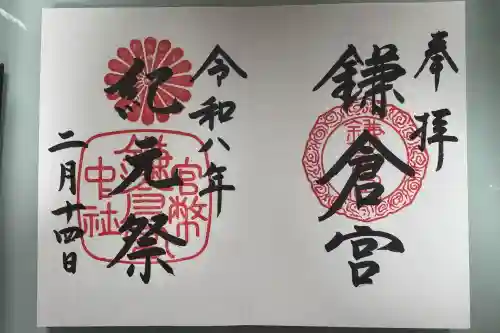 奉拝
鎌倉宮
令和八年
紀元祭
二月十四日
鎌
官幣
鎌倉宮
中社